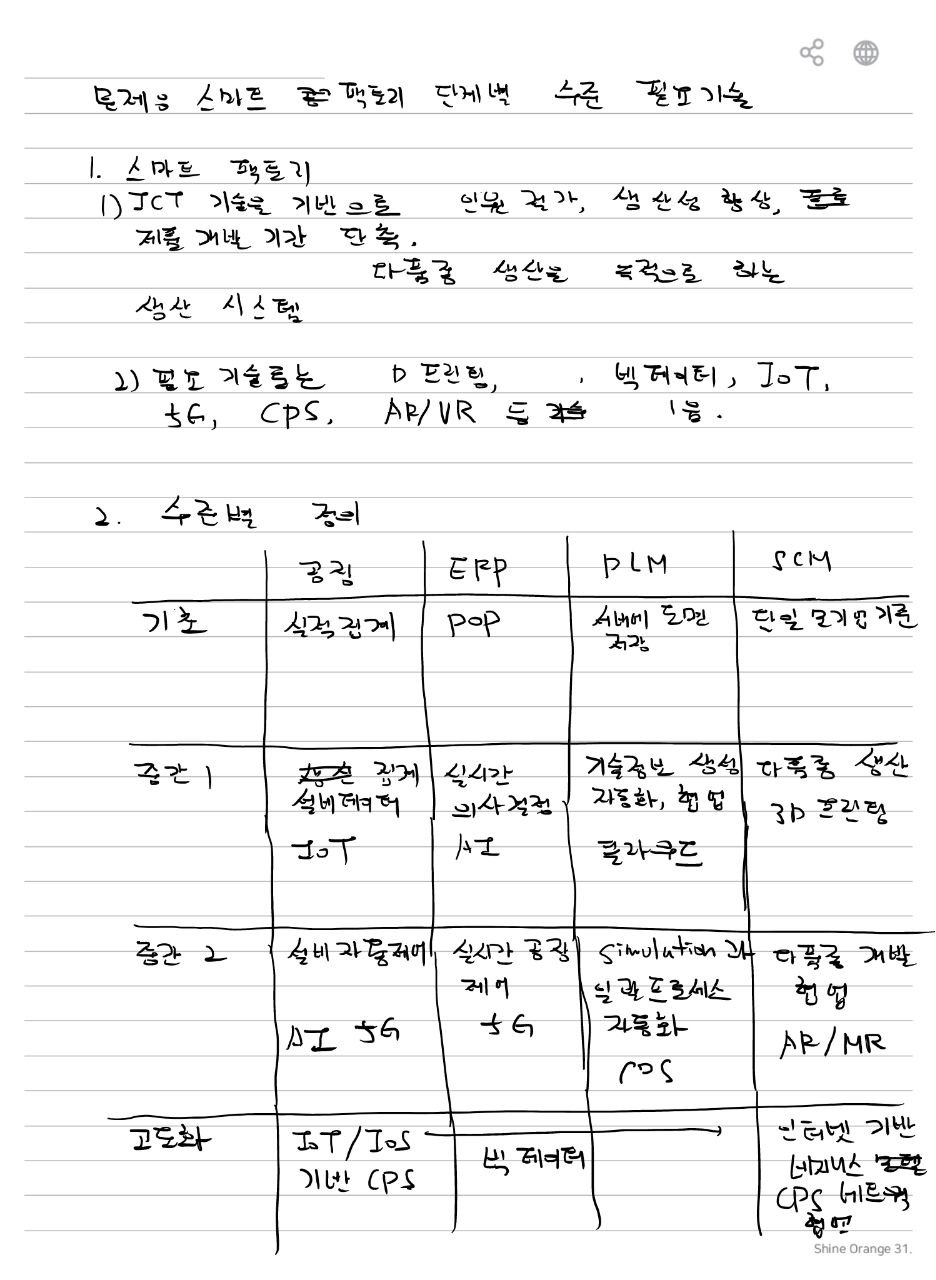 문제8 스마트 팩토리 단계별 수준 필요기술
1. 스마트 팩토리
1) ICT 기술을 기반으로 인원 절가, 생산성 향상,
제품 개발 기간 단축.
다품종 생산을 목적으로 하는
생산 시스템
2) 필요 기술로는 D 프린팅, , 빅데이터, IoT,
5G, CPS, AR/VR 등
2. 수준별 정의
공정 ERP PLM SCM
기초 실적집계 POP 서버에 도면 단일 모기업 기준
저장
중간 1 집계 실시간 기술정보 생성 다품종 생산
설비데이터 의사결정 자동화, 협업 3D 프린팅
IoT AI 클라우드
중간 2 설비 자동제어 실시간 공장 Simulation과 다품종 개발
제어 일괄프로세스 협업
AI 5G 5G 자동화 AR/MR
CPS
고도화 IoT/IoS 인터넷 기반
기반 CPS 빅데이터 비지니스
CPS 네트워크
협업
Shine Orange 31.